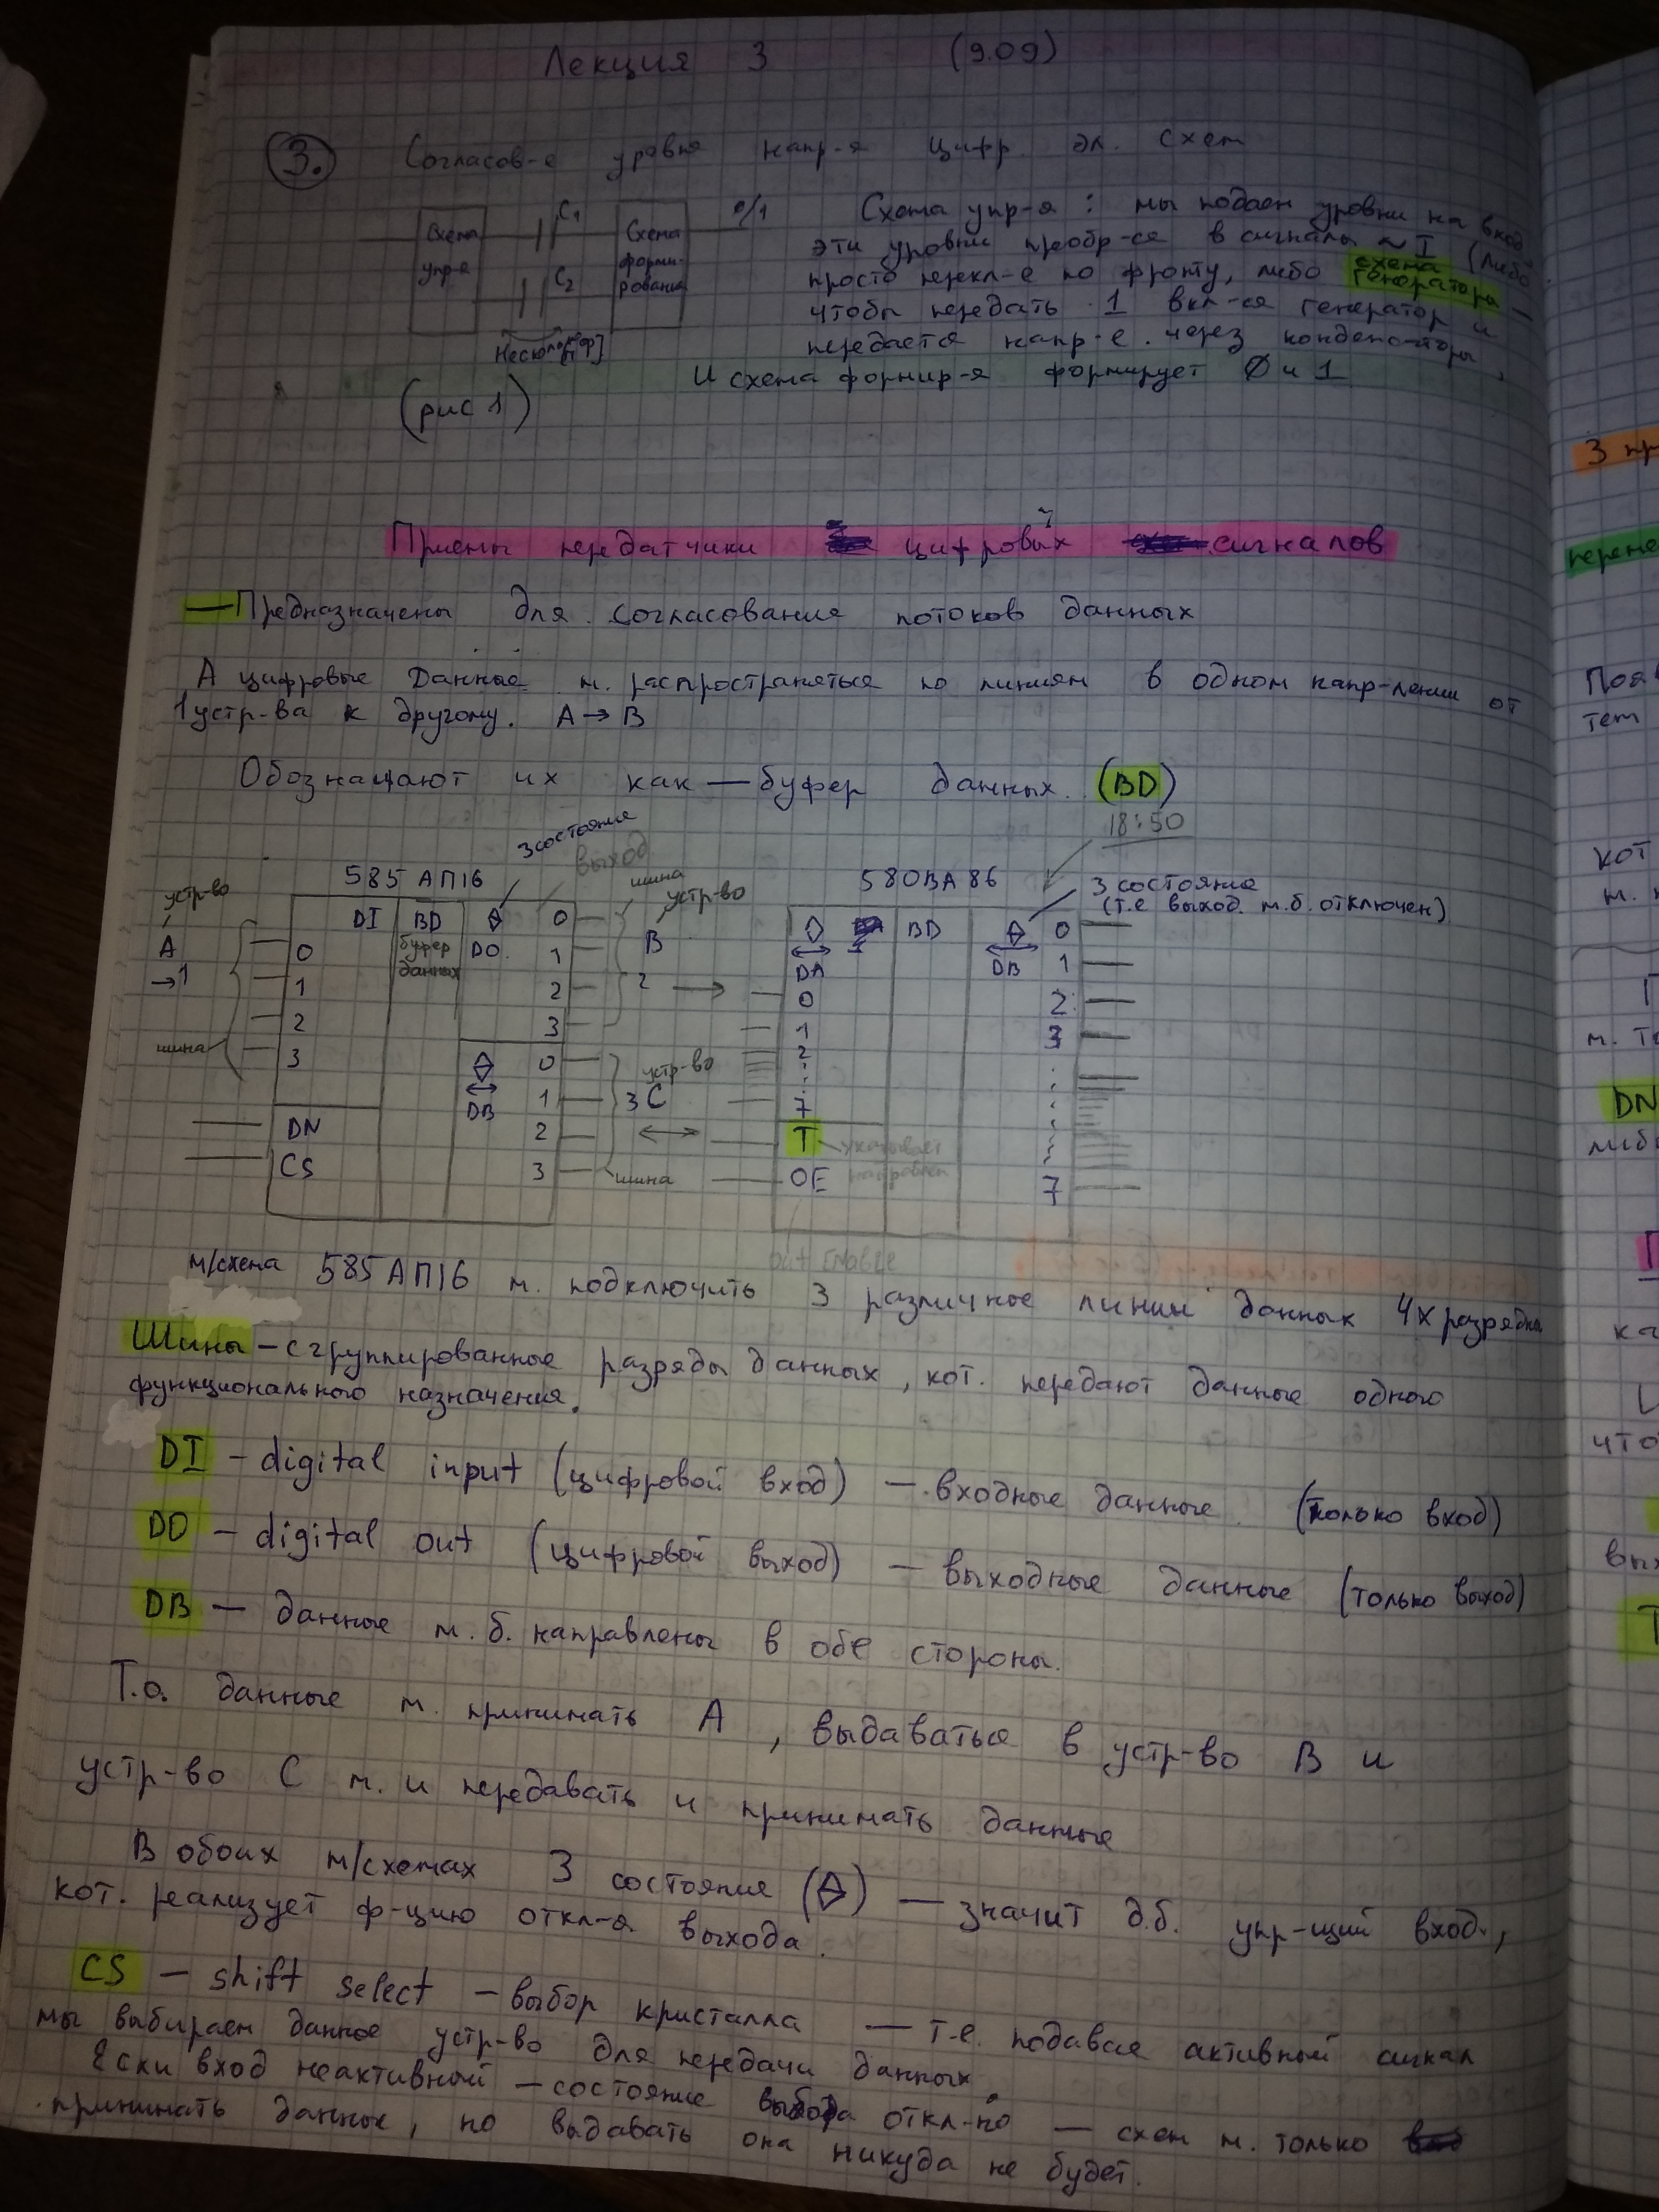 Лекция 3 (9.09)
3. Согласов-е уровня напр-я цифр. эл. схем
Схема упр-я
C1
C2
Схема форми-рования
0/1
(рис 1)
Схема упр-я : мы подаем уровни на вход
эти уровни преобр-ся в сигналы ~ I (либо
просто перекл-е по фронту, либо схема генератора —
чтобы передать 1 вкл-ся генератор и
передается напр-е через конденс-торы,
И схема формир-я формирует 0 и 1
Приемы передатчики цифровых сигналов
— Предназначены для согласования потоков данных
А цифровые данные м. распространяться по линиям в одном напр-лении от
1 устр-ва к другому. A → B
Обозначают их как — буфер данных. (BD)
18:50
3 состояние
выход
585 АП16
устр-во
A
→1
шина
DI
BD
буфер данных
DO
0
1
2
3
0
1
2
3
DN
CS
DB
0
1
2
3
шина
устр-во
B
2 →
устр-во
3 C
↔
шина
580ВА86
3 состояние
(т.е выход м.б. отключен)
DA
BD
DB
0
1
2
7
T
указывает направлен
OE
out Enable
0
1
2
3
7
м/схема 585АП16 м. подключить 3 различные линии данных 4х разрядн
Шины — сгруппированные разряды данных, кот. передают данные одного
функционального назначения.
DI — digital input (цифровой вход) — входные данные. (только вход)
DO — digital out (цифровой выход) — выходные данные (только выход)
DB — данные м.б. направлены в обе стороны.
Т.о. данные м. принимать A, выдаваться в устр-во B и
устр-во C м. и передавать и принимать данные
В обоих м/схемах 3 состояние — значит д.б. упр-щий вход,
кот. реализует ф-цию откл-я выхода.
CS — shift select — выбор кристалла — т.е. подавая активный сигнал
мы выбираем данное устр-во для передачи данных.
Если вход неактивной — состояние выбора откл-но — схем м. только
принимать данные, но выдавать она никуда не будет.
3 пр
перене
Поя
тем
кот
DN
что